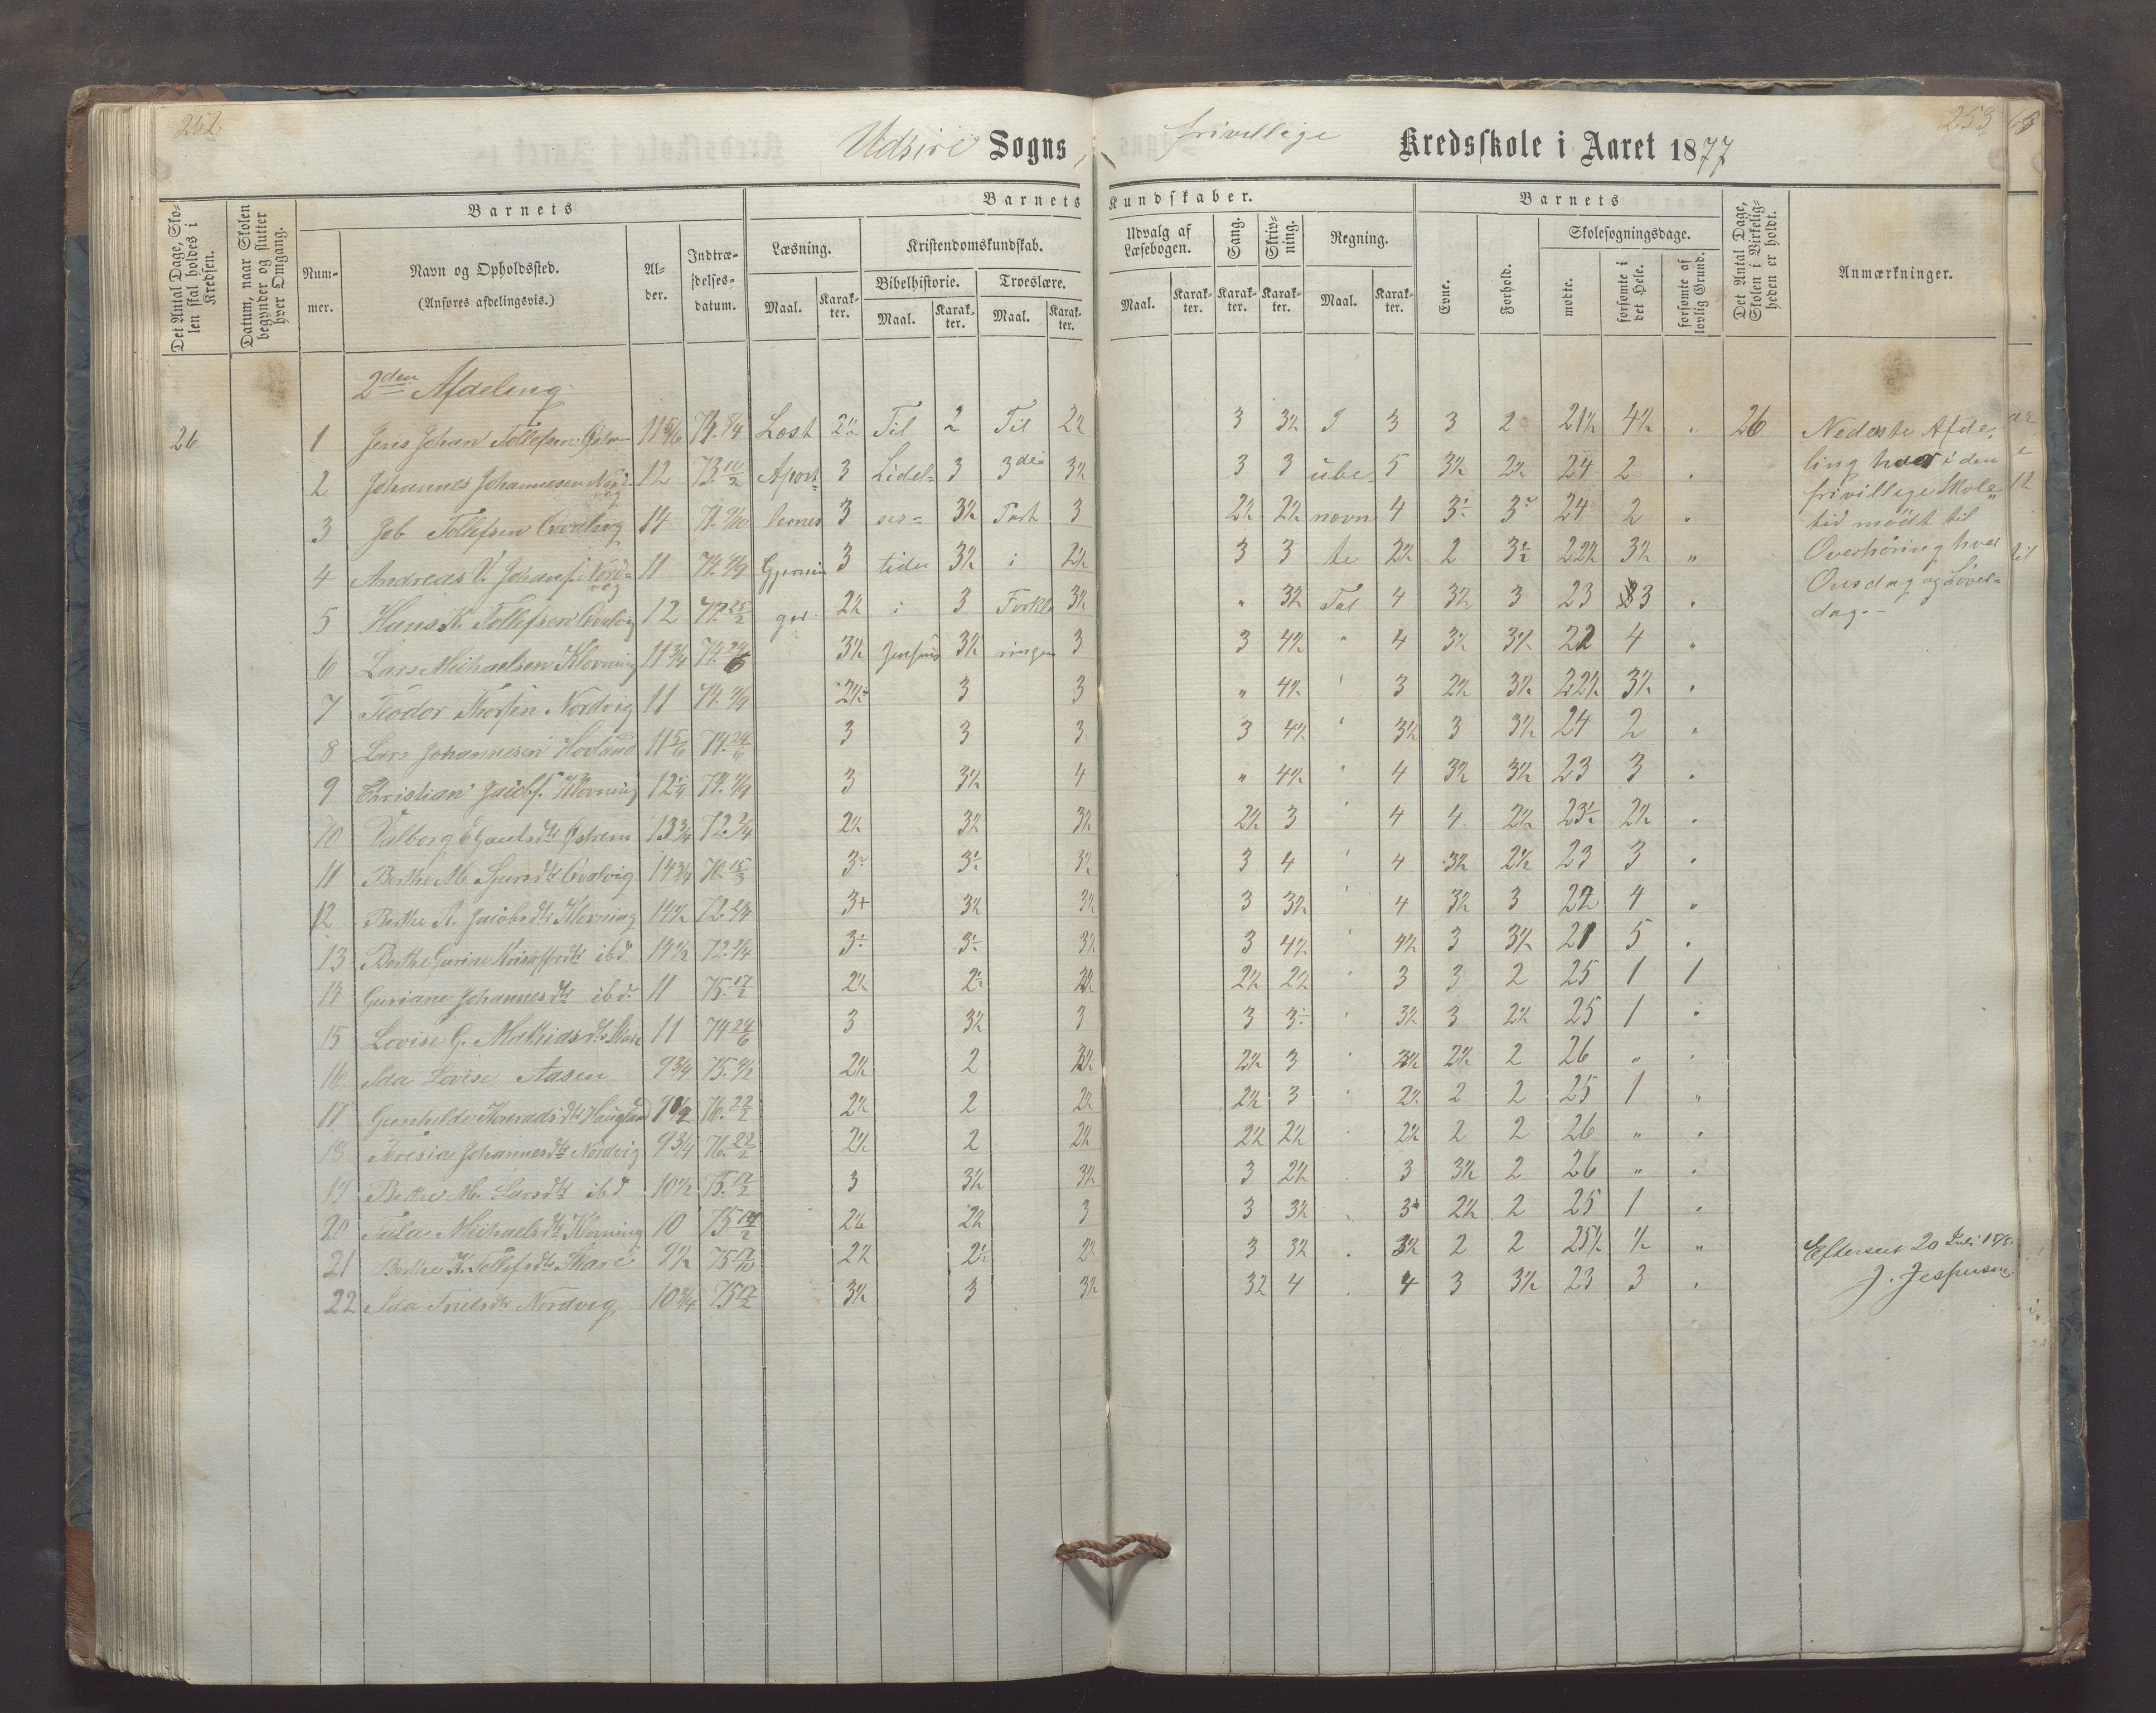 252
Udsire Sogns
frivillige Kredsskole i Aaret 1877
253
Det Antal Dage, Skolen skal holdes i Kredsen.
Datum, naar Skolen begynder og slutter hver Omgang.
Barnets
Nummer.
Navn og Opholdssted.
(Anføres afdelingsvis.)
Alder.
Indtrædelsesdatum.
Barnets Kundskaber.
Læsning.
Maal. Karakter.
Kristendomskundskab.
Bibelhistorie. Troeslære.
Maal. Karakter. Maal. Karakter.
Udvalg af Læsebogen.
Maal. Karakter.
Sang. Karakter.
Skrivning. Karakter.
Regning.
Maal. Karakter.
Barnets
Evne. Forhold.
Skolesøgningsdage.
mødte. forsømte i det Hele. forsømte af lovlig Grund.
Det Antal Dage, Skolen i Virkeligheden er holdt.
Anmærkninger.
2den Afdeling
26 1 Jens Johan Tollefsen 11 5/6 74. Læst 2½ Til 2 Til 2½ 3 3½ I 3 3 2 21½ 4½ 26 Nederste Afde,
2 Johannes Johannesen Nordvig 12 73. 10/2 Apost= 3 Lidel= 3 3die 3½ 3 3 ube= 5 3½ 2½ 24 2 ling har i den
3 Job Tollefsen Qvalvig 14 lernes 3 ses= 3½ Part 3 2½ 2½ nævn 4 24 2 frivillige Skole„
tid mödt til
4 Andreas V. Johans. Nordvig 11 74. Gjernin 3 tider 3½ i 2½ 3 3 te 2½ 2 22½ 3½ Overhøring hver
5 Hans K. Tollefsen Qvalvig 12 ger. 2½ i 3 Forkla 3½ 3½ Tal 4 3½ 3 23 3 Onsdag og Löver=
dag.-
6 Lars Michaelsen Klovning 11 3/4 74. 3½ Jensens 3½ ringen 3 3 4½ 4 3½ 3½ 22 4
7 Teodor Thorsen Nordvig 11 74. 3 3 4½ 3 2½ 3½ 22½ 3½
8 Lars Johannesen Hovland 11 5/6 74. 24/6 3 3 3 3 4½ 3½ 3 3½ 24 2
9 Christian Jacobs. Klovning 12 74. 3 3½ 4 4½ 4 3½ 3½ 23 3
10 Valborg E Gautsdtr Østrem 13 3/4 72. 2½ 3½ 3½ 2½ 3 4 4 2½ 2½
11 Berthe M. Sjursdtr Qvalvig 14 3/4 70. 15/3 3½ 3 4 4 3½ 2½ 23 3
12 Berthe A. Jacobsdtr Klovning 14½ 72. 3+ 3½ 3½ 3 3½ 4 3½ 3 22 4
13 Berthe Gurine ibd 14½ 72. 3½ 3 4½ 4½ 3 3½ 21 5
14 Guriane Johannesdtr ibd. 11 75. 17/2 2½ 2½ 2½ 3 3 2 25 1 1
15 Lovise G. Mathiasdtr Skare 11 74 24/6 3 3½ 3 3 3½ 3 2½ 25 1
16 Ada Lovise Aasen 9 3/4 75. 2½ 2 2½ 3 2½ 2 26
17 Gunhilde Konradsdtr 76. 22/2 2½ 2 2½ 2½ 3 2½ 2 2 25 1
18 Johannesdtr Nordvig 9 3/4 76. 22/2 2½ 2 2½ 2½ 2½ 2½ 2 2 26
19 Berthe M. Larsdtr ibd 10½ 75. 17/2 3 3½ 3½ 3 2½ 3 3½ 2 26
20 Michaelsdtr Klovning 10 75 2½ 2½ 3 3 3½ 2½ 2 25 1
21 Berthe K. Tollefsdtr Skare 9½ 75 17/10 2½ 2½ 2½ 3 3½ 2 2 25½ ½
22 Ada Truelsdtr Nordvig 10 3/4 75 17/2 3½ 3 3½ 3½ 4 4 3 3½ 23 3
Efterseet 20 Juli
J. Jespersen